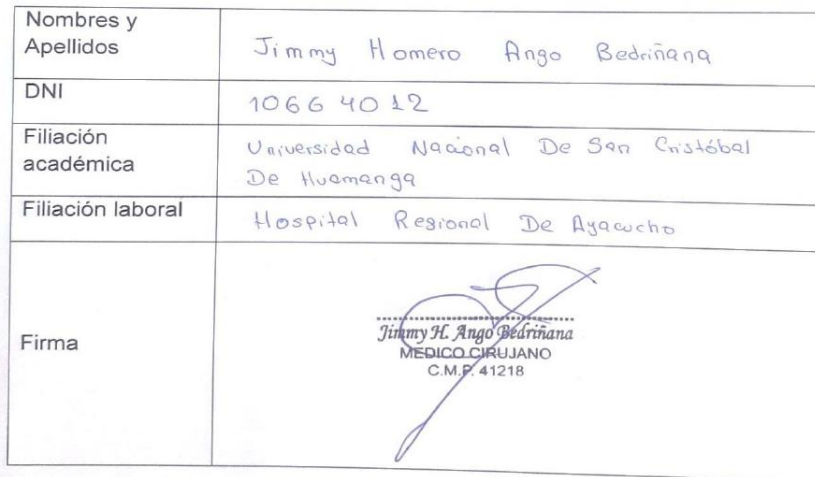 Nombres y
Apellidos
Jimmy Homero Ango Bedriñana
DNI
10664012
Filiación
académica
Universidad Nacional De San Cristóbal
De Huamanga
Filiación laboral
Hospital Regional De Ayacucho
Firma
Jimmy H. Ango Bedriñana
MEDICO CIRUJANO
C.M.P. 41218